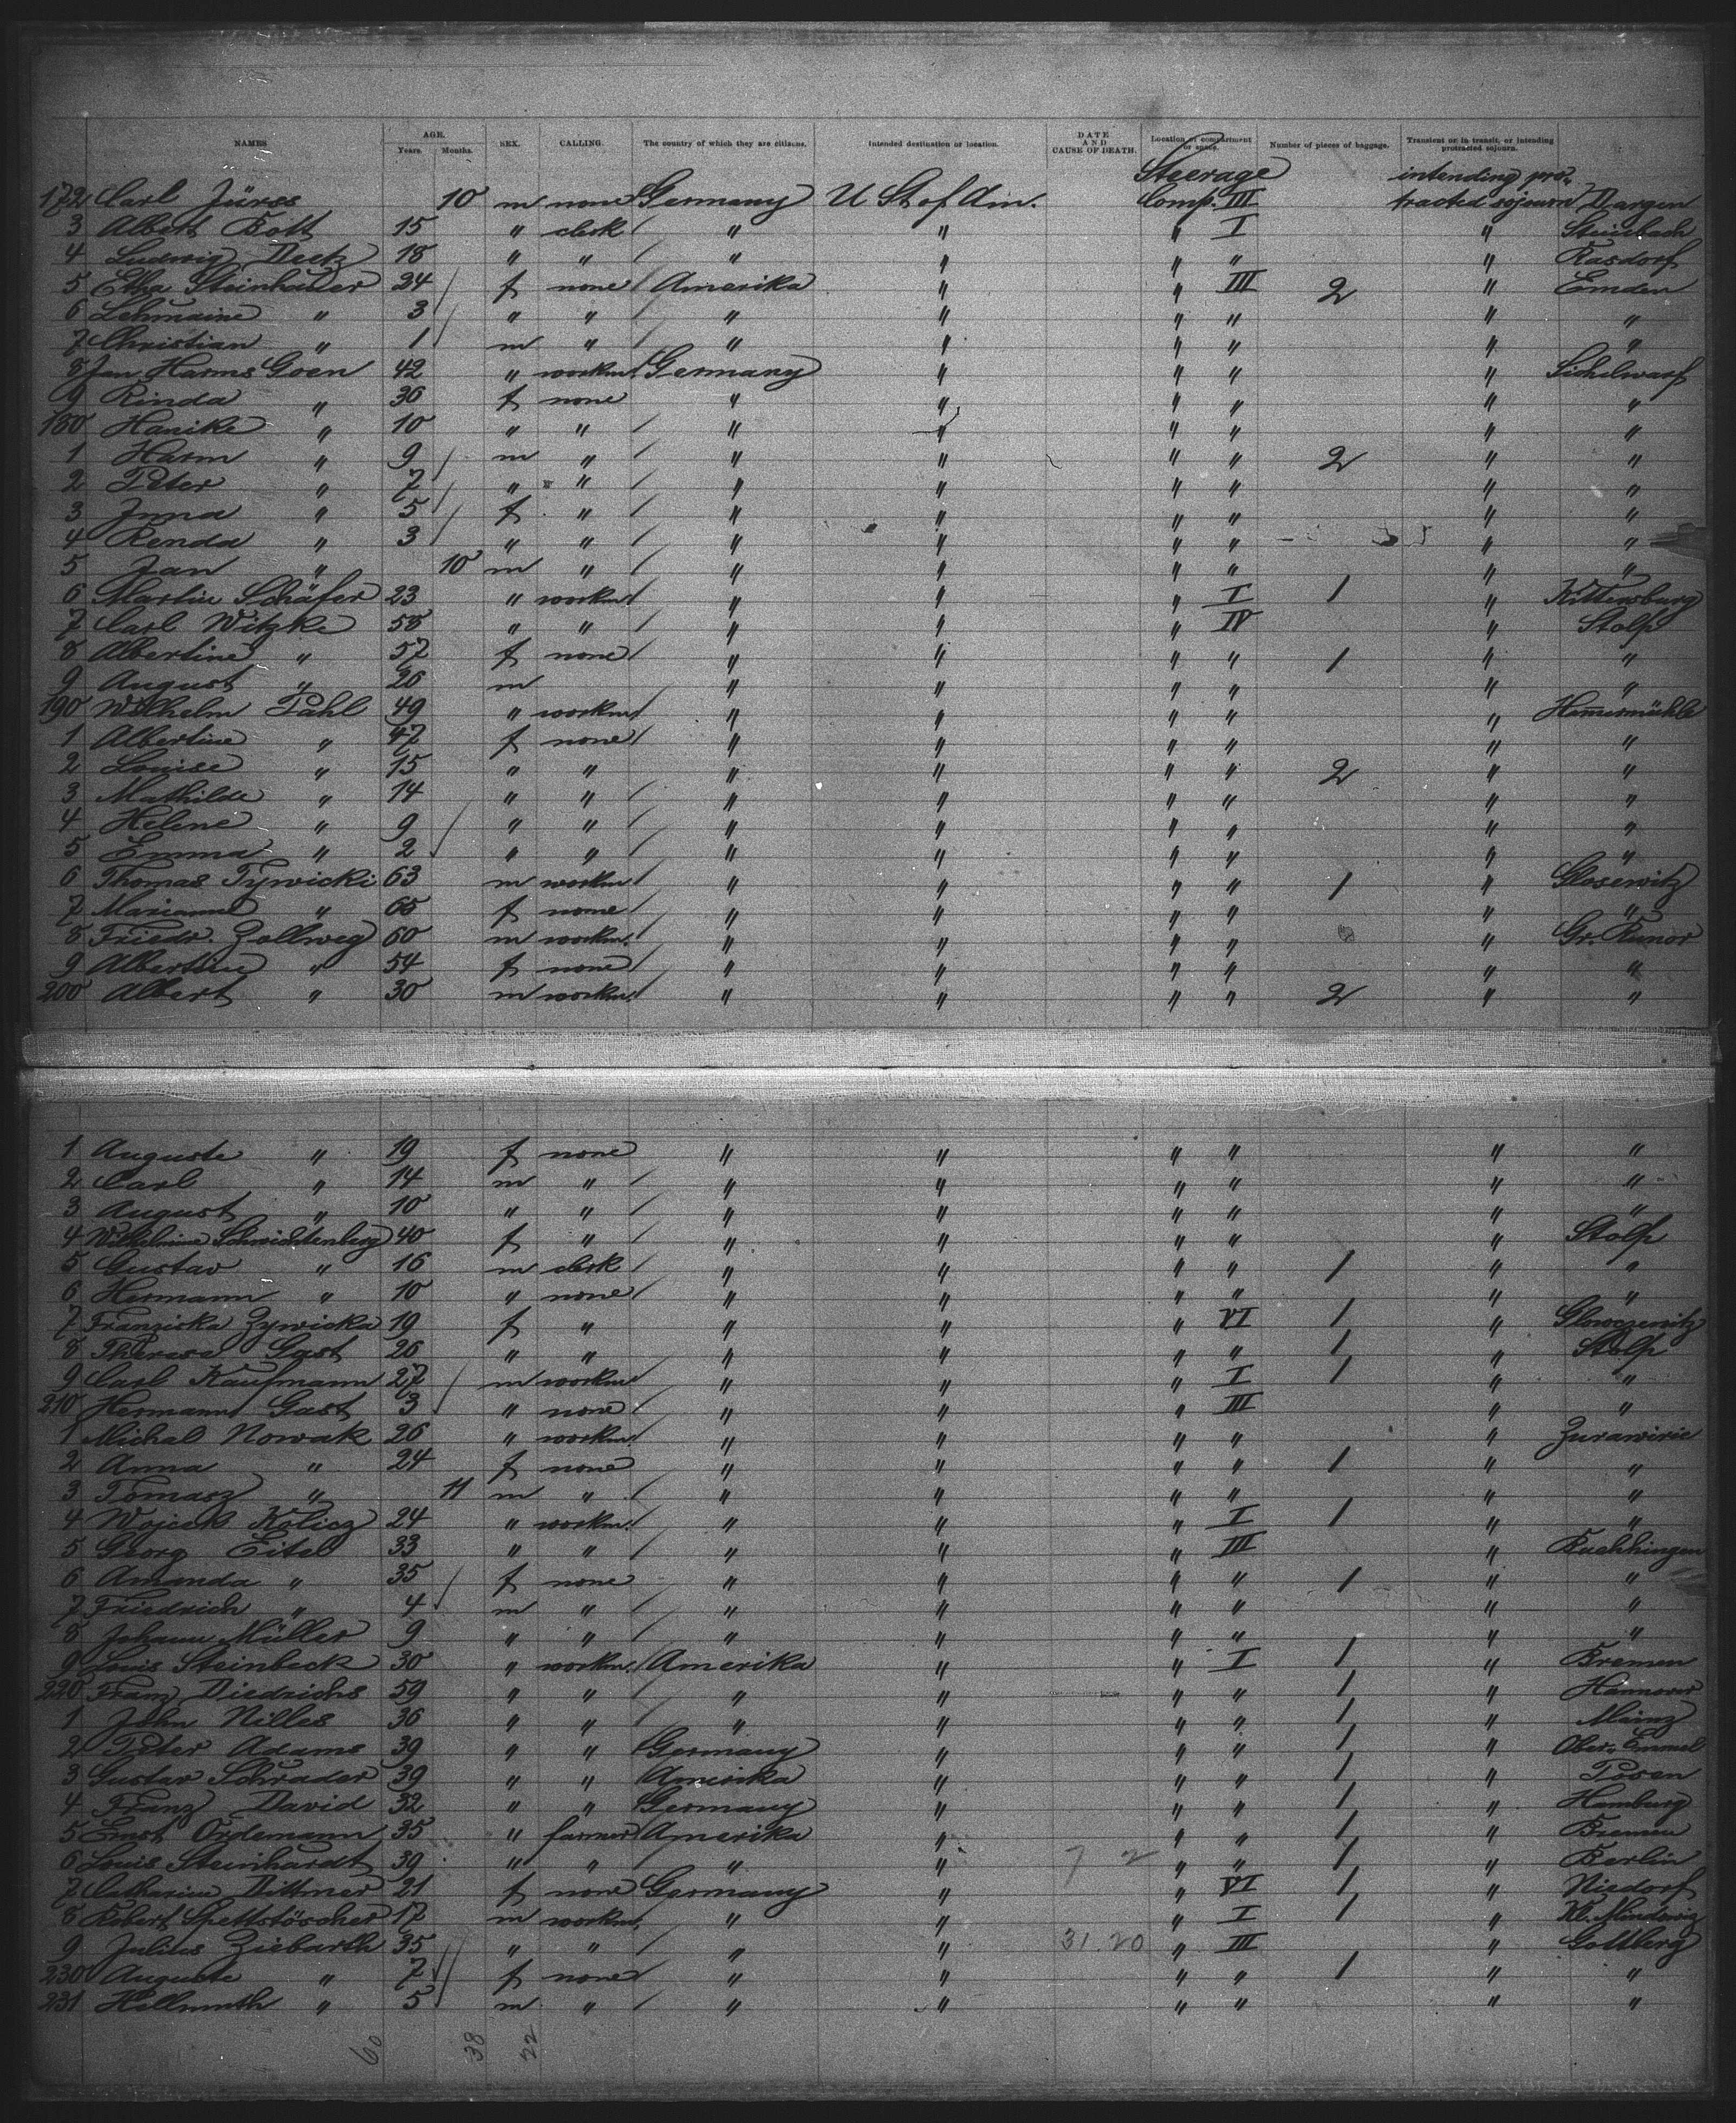 NAMES AGE. Years. Months. SEX. CALLING. The country of which they are citizens. Intended destination or location. DATE AND CAUSE OF DEATH. Location of compartment or space. Number of pieces of baggage. Transient or in transit, or intending protracted sojourn.
Steerage intending pro-
172 Carl Jürss 10 m none Germany U St of Am. Comp. III tracted sojourn Dargen
3 Albert Bott 15 " clerk " " " I " Steinbach
4 Ludwig Deetz 18 " " " " " " " Rasdorf
5 Etha Steinhauer 24 f none Amerika " " III 2 " Emden
6 Lehmaine " 3 " " " " " " " "
7 Christian " 1 m " " " " " " "
8 Jan Harms Goen 42 " workm. Germany " " " " Sichelwarf
9 Rinda " 36 f none " " " " " "
180 Hanike " 10 " " " " " " " "
1 Harm " 9 m " " " " " 2 " "
2 Peter " 7 " " " " " " " "
3 Jnna " 5 f " " " " " " "
4 Renda " 3 " " " " " " " "
5 Jan " 10 m " " " " " " "
6 Martin Schäfer 23 " workm " " " I 1 " Kittersburg
7 Carl Witzke 58 " " " " " IV " Stolp
8 Albertine " 57 f none " " " " 1 " "
9 August " 26 m " " " " " "
190 Wilhelm Pahl 49 " workm " " " " " Hammermühle
1 Albertine " 47 f none " " " " " "
2 Louise " 15 " " " " " " 2 " "
3 Mathilde " 14 " " " " " " " "
4 Helene " 9 " " " " " " " "
5 Emma " 2 " " " " " " " "
6 Thomas Tywicki 63 m workm " " " " 1 " Glosewitz
7 Marianne " 65 f none " " " " " "
8 Friedr. Zollweg 60 m workm. " " " " " Gr. Runor
9 Albertine " 54 f none " " " " " "
200 Albert " 30 m workm. " " " " 2 " "
1 Auguste " 19 f none " " " " " "
2 Carl " 14 m " " " " " " "
3 August " 10 " " " " " " " "
4 Wilhelmine Schwichtenberg 40 f " " " " " " Stolp
5 Gustav " 16 m clerk " " " " 1 " "
6 Hermann " 10 " none " " " " " "
7 Franziska Zywicka 19 f " " " " VI 1 " Glowczewitz
8 Therese Gast 26 " " " " " " 1 " Stolp
9 Carl Kaufmann 27 m workm " " " I 1 " "
210 Hermann Gast 3 " none " " " III " "
1 Michal Nowak 26 " workm. " " " " " Zurawirie
2 Anna " 24 f none " " " " 1 " "
3 Tomasz " 11 m " " " " " " "
4 Wojcek Kolicz 24 " workm. " " " I 1 " "
5 Georg Eitel 33 " " " " " III " Fuchhingen
6 Amanda " 35 f none " " " " 1 " "
7 Friedrich " 4 m " " " " " " "
8 Johann Müller 9 " " " " " " " "
9 Louis Steinbeck 30 " workm. Amerika " " I 1 " Bremen
220 Franz Diedrichs 59 " " " " " " 1 " Hannover
1 John Nilles 36 " " " " " " 1 " Mainz
2 Peter Adams 39 " " Germany " " " 1 " Ober-Emmel
3 Gustav Schrader 39 " " Amerika " " " 1 " Posen
4 Franz David 32 " " Germany " " " 1 " Hamburg
5 Ernst Ordemann 35 " farmer Amerika " " " 1 " Bremen
6 Louis Steinhardt 39 " " " " 7 2 " " 1 " Berlin
7 Catharine Dittmer 21 f none Germany " " VI 1 " Niedorf
8 Robert Spettstöscher 17 m workm. " " " I 1 " Kl.
9 Julius Ziebarth 35 " " " " 31.20 " III " Gollberg
230 Auguste " 7 f none " " " " 1 " "
231 Hellmuth " 5 m " " " " " " "
60 38 22